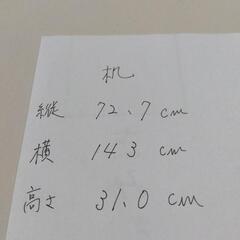 机
縦 72.7 cm
横 143 cm
高さ 31.0 cm